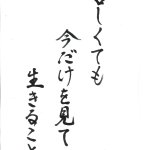 しくても
今だけを見て
生きること